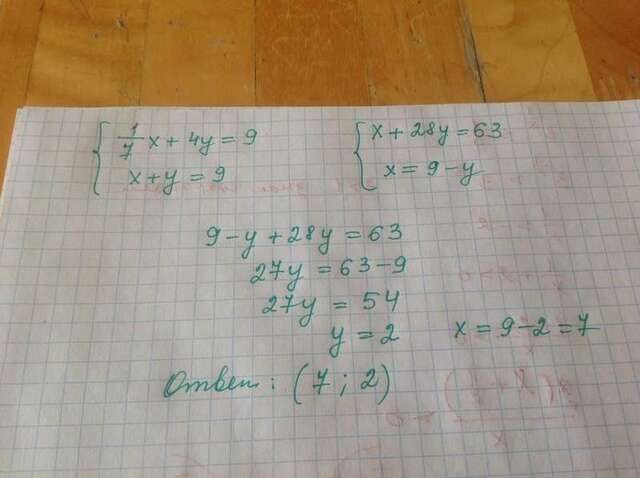 1/7 x + 4y = 9
x + y = 9
x + 28y = 63
x = 9 - y
9 - y + 28y = 63
27y = 63 - 9
27y = 54
y = 2
x = 9 - 2 = 7
Ответ: (7; 2)